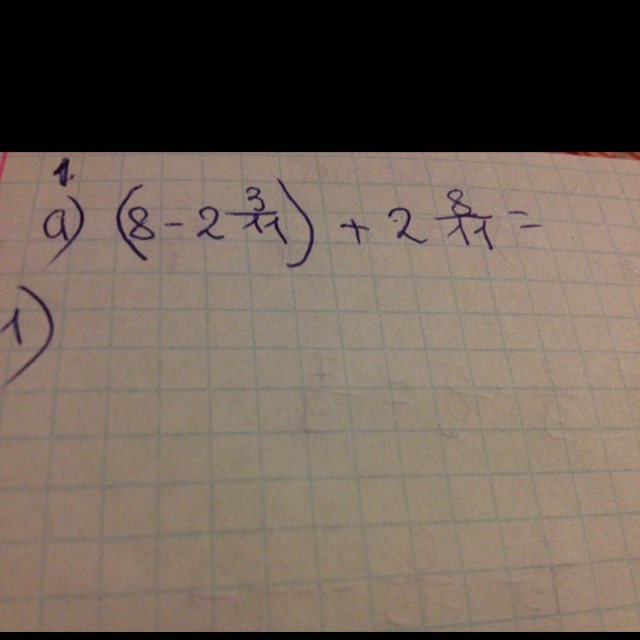 1.
a) (8 - 2 3/11) + 2 8/11 =
1)